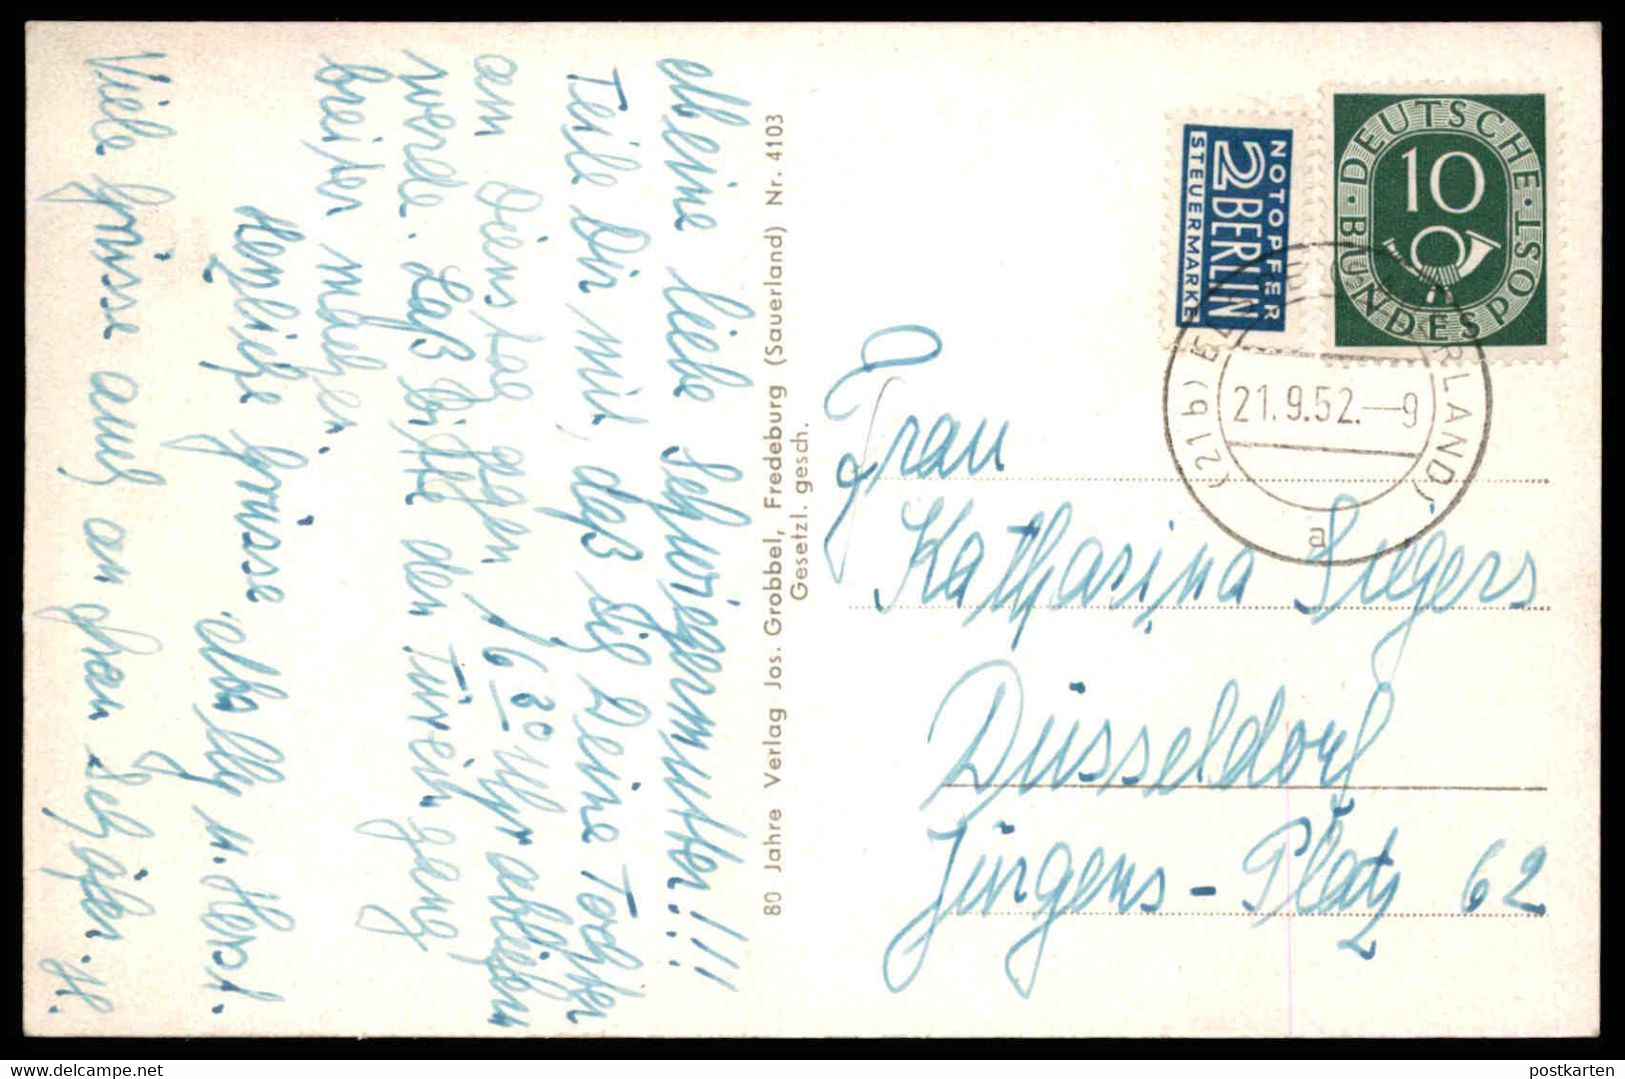 Meine liebe Schwiegermutter!!!
Teile Dir mit, daß ich Deine Tochter
am Dienstag gegen 16 30 Uhr abliefern
werde. Laß bitte den Türeingang
breiter machen.
Herzliche Grüsse, u. Horst.
Viele Grüsse auch an H.
80 Jahre Verlag Jos. Grobbel, Fredeburg (Sauerland) Nr. 4103
Gesetzl. gesch.
NOTOPFER
2 BERLIN
STEUERMARKE
DEUTSCHE BUNDESPOST
10
(21b) ERLAND)
21.9.52.—9
a
Frau
Katharina Siegers
Düsseldorf
Jürgens-Platz 62
delcampe.net
postkarten